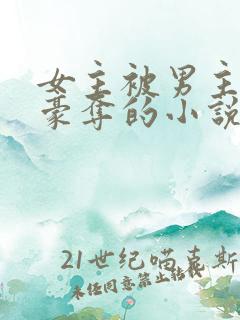 女主被男主
豪夺的小說
21世纪喵喜斯
未经同意禁止转载